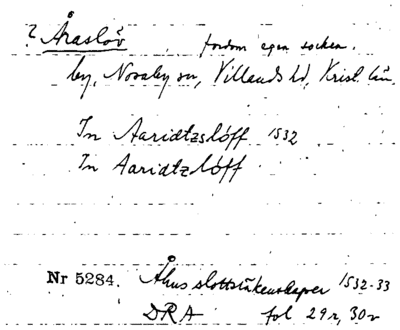 ? Åraslöv fordom egen socken.
by, Nosaby sn, Villands hd, Krist. län.
In Aaridtzslöff 1532
In Aaridtzlöff
Nr 5284. Åhus slottsräkenskaper 1532-33
DRA fol 29r, 30r